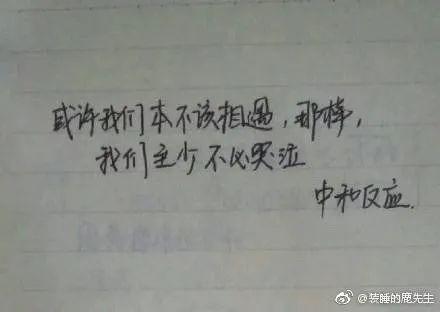 或许我们本不该相遇，那样，
我们至少不必哭泣
中和反应.
@装睡的鹿先生